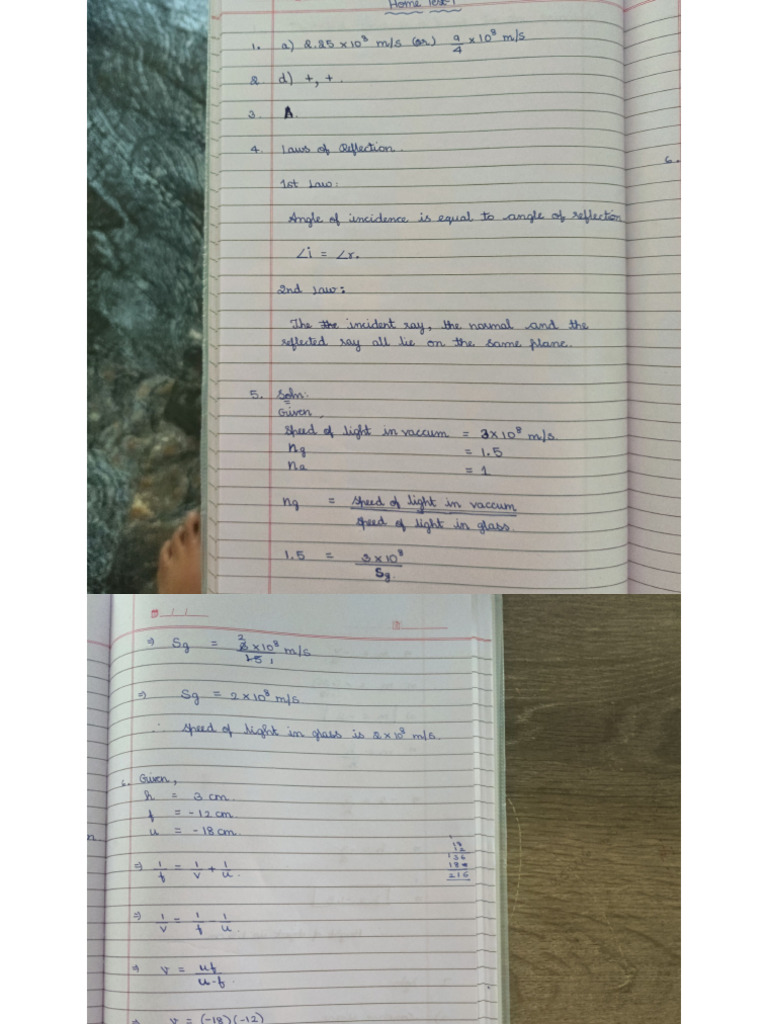 Home Test-1
1. a) 2.25 × 10⁸ m/s (or) 9/4 × 10⁸ m/s
2 d) +, +.
3. A.
4. Laws of Reflection.
6.
1st Law:
Angle of incidence is equal to angle of reflection
∠i = ∠r.
2nd Law:
The the incident ray, the normal and the
reflected ray all lie on the same plane.
5. Soln:
Given,
Speed of light in vaccum = 3×10⁸ m/s.
ng = 1.5
na = 1
ng = speed of light in vaccum / speed of light in glass.
1.5 = 3×10⁸ / Sg.
⇒ Sg = 3×10⁸ / 1.5 m/s
2
1
⇒ Sg = 2×10⁸ m/s
∴ speed of light in glass is 2×10⁸ m/s.
6. Given,
h = 3 cm.
f = -12 cm.
u = -18 cm.
⇒ 1/f = 1/v + 1/u.
18
12
36
18
216
⇒ 1/v = 1/f - 1/u
⇒ v = uf / u-f.
⇒ v = (-18)(-12)